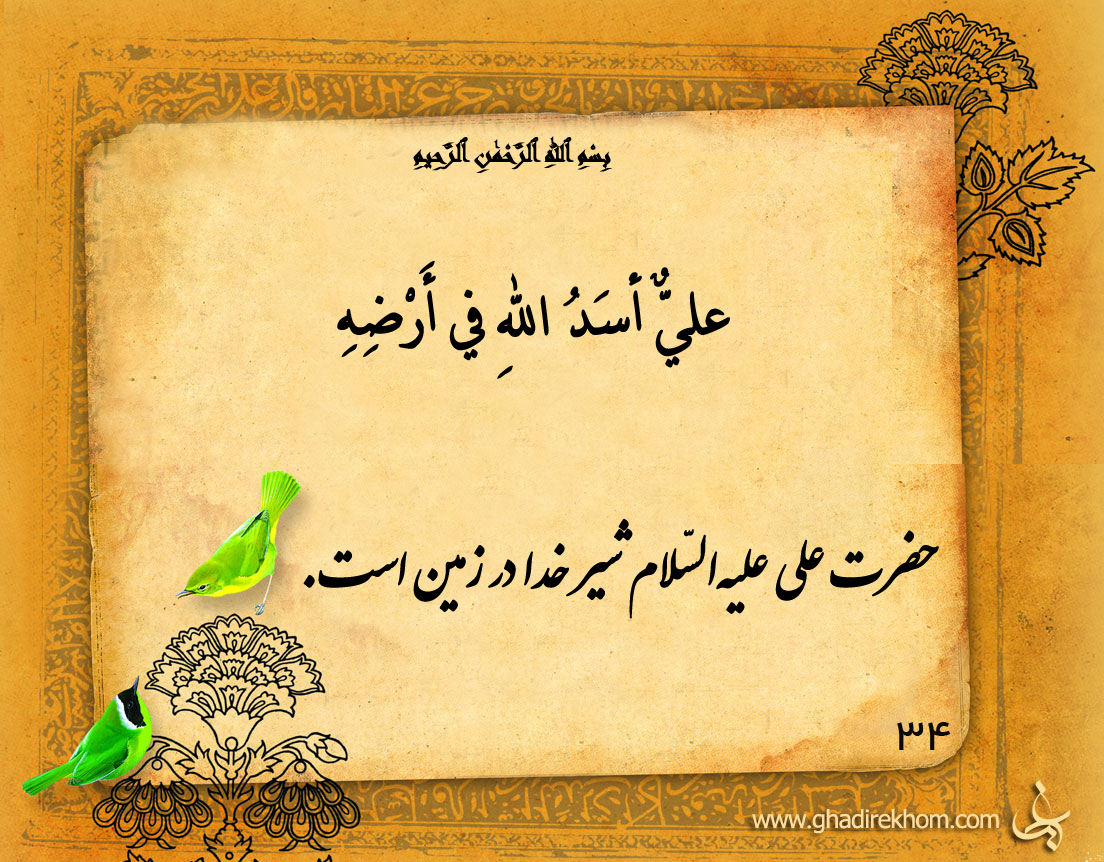 بِسْمِ ٱللَّهِ ٱلرَّحْمَٰنِ ٱلرَّحِيمِ
عليٌّ أسَدُ اللهِ في أَرْضِهِ
حضرت علی علیه‌السّلام شیر خدا در زمین است.
۳۴
www.ghadirekhom.com